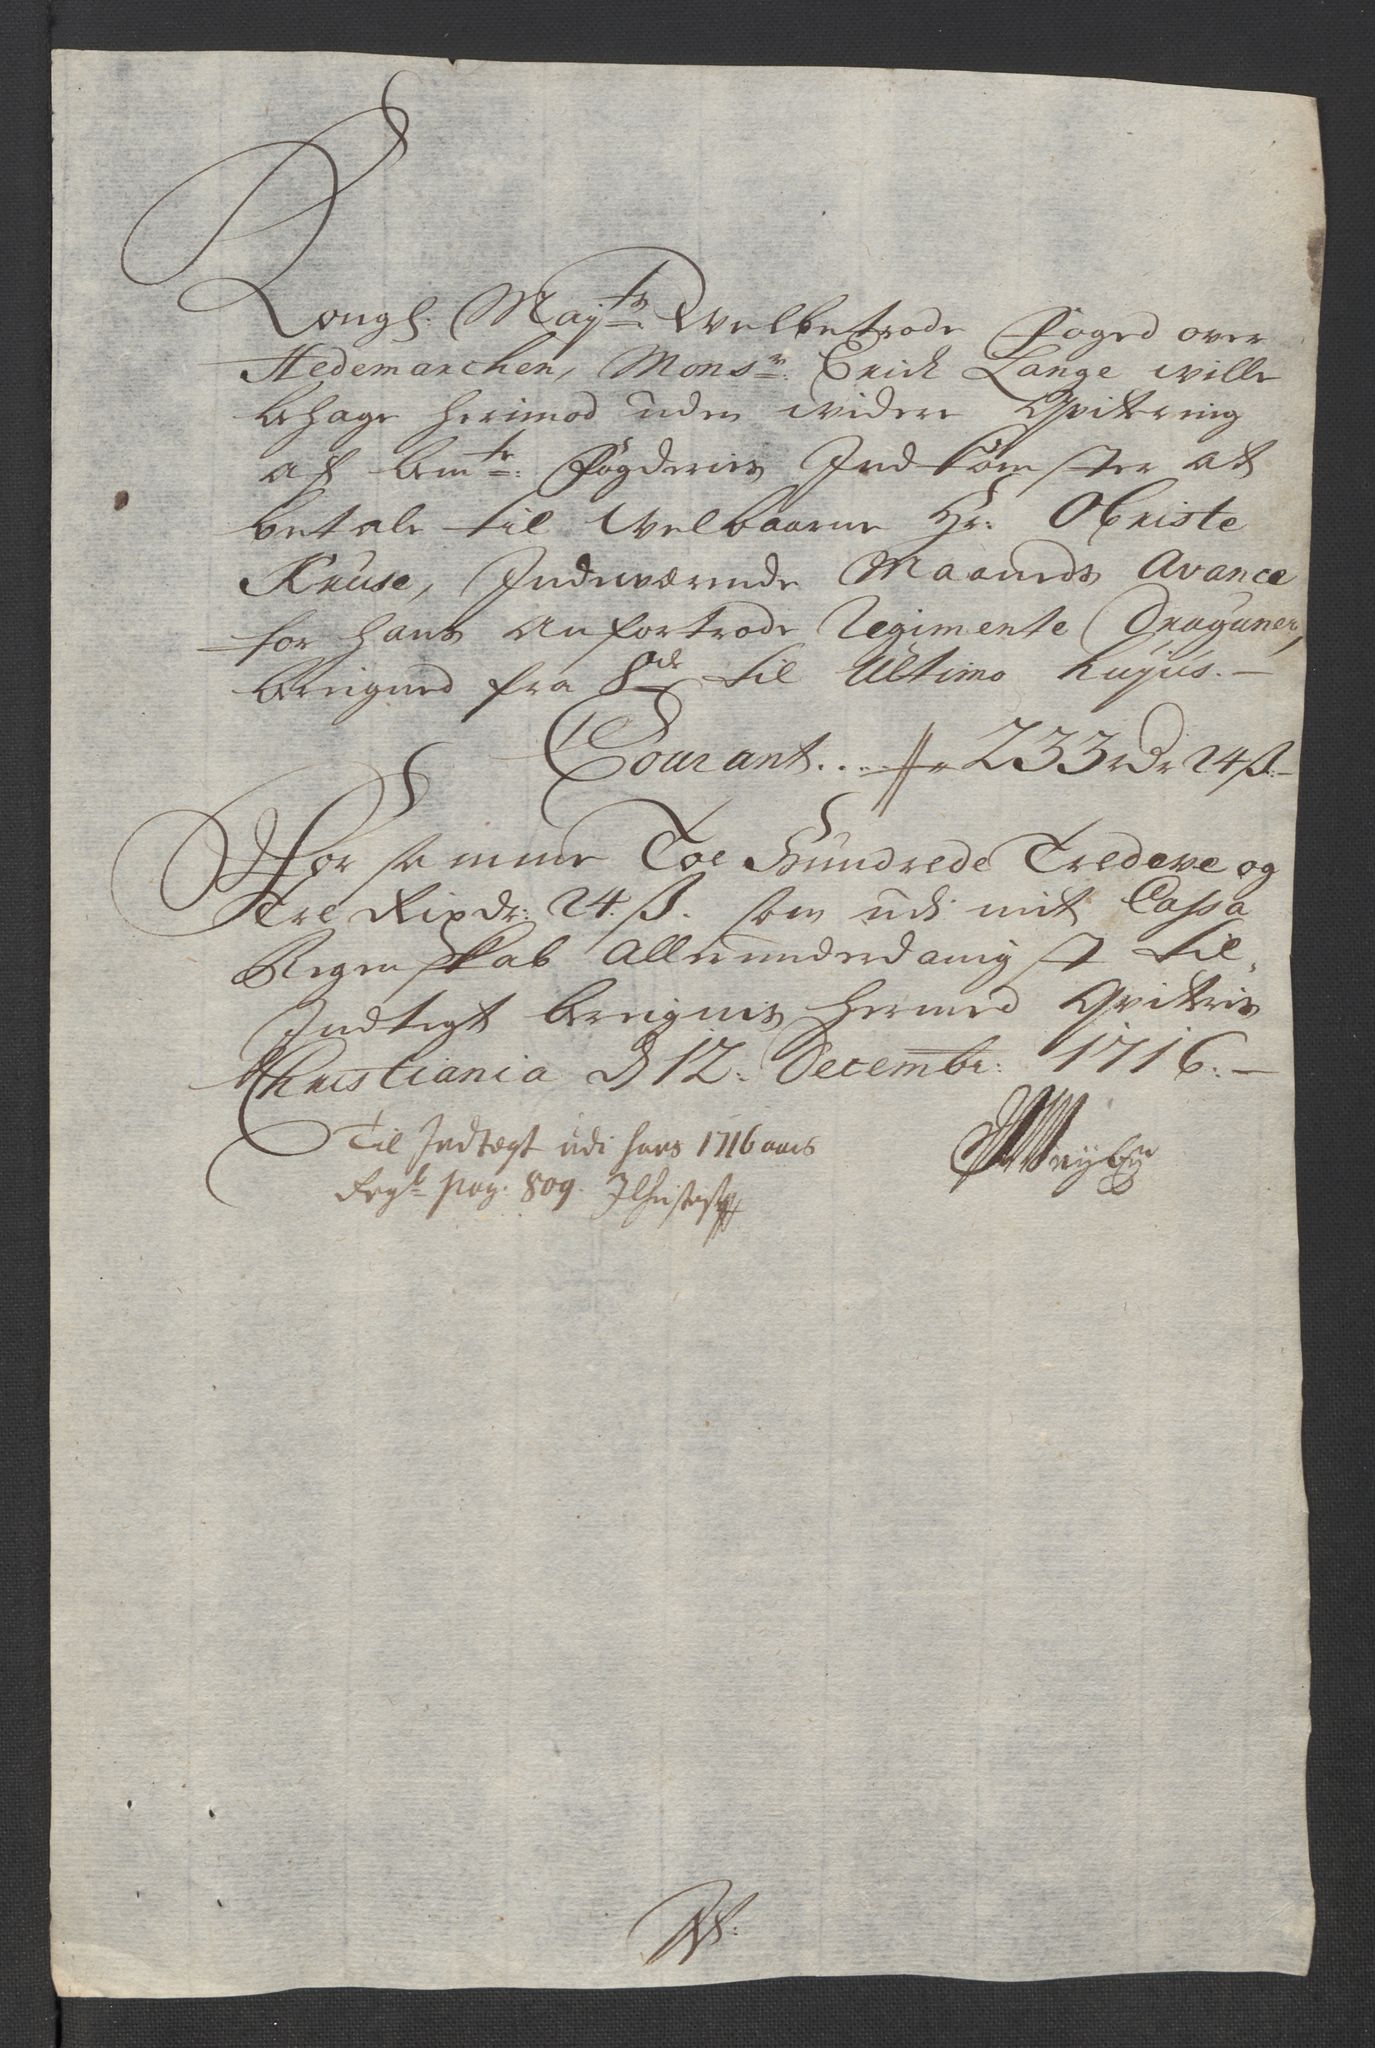 Kongl: Mayts Welbetrode Foged over
Hedemarchen, Monsr: Erich Lange wille
behage herimod uden widere Qvitering
af bemte: Fogderies Indkomster at
betale til Welbaarne Hr: Obriste
Kruse, Indeværende Maaneds Avance
for hans Anfortrode Regimente Dragoner,
beregned fra 8de til Ultimo hujus. —
Courant. . . . 233 rdr 24 ß: —
For samme Toe Hundrede Tredeve og
Tre Rixdr: 24. ß. som udi mit Cassa
Regenskab Allerunderdanigst til
Indtegt beregnes hermed Qvitteris
Christiania d 12. Decembr: 1716. —
Til Indtegt udi hans 1716 aars
Regsk pag. 809.